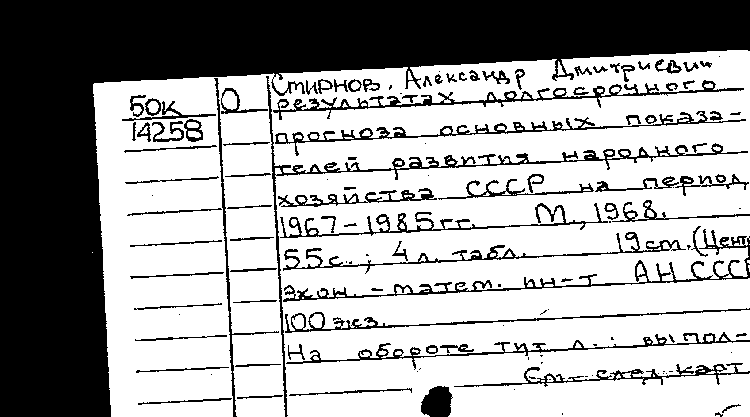 Смирнов, Александр Дмитриевич
50к О результатах долгосрочного
14258 прогноза основных показа-
телей развития народного
хозяйства СССР на период
1967-1985 гг. М., 1968.
55с.; 4 л. табл. 19 cm. (Центр
экон.-матем. ин-т АН СССР
100 экз.
На обороте тит л.: выпол-
См. след. карт